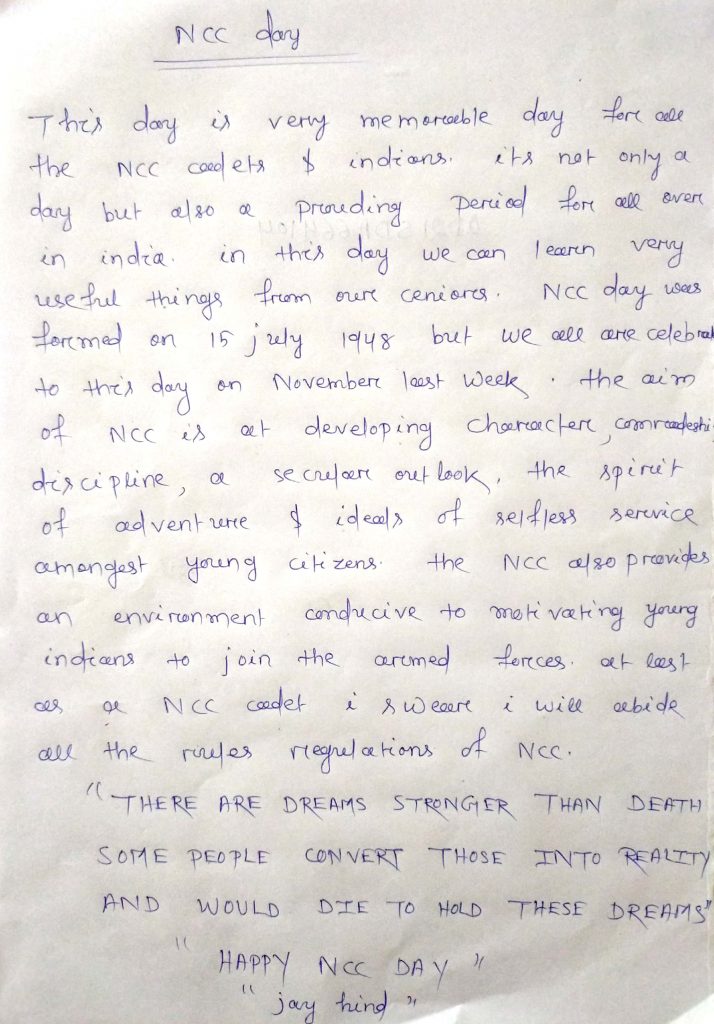 NCC day
This day is very memorable day for all
the NCC cadets & indians. its not only a
day but also a prouding period for all over
in india. in this day we can learn very
useful things from our ceniors. NCC day was
formed on 15 july 1948 but we all are celebrat
to this day on November last week. the aim
of NCC is at developing character, comradeshi
discipline, a secular outlook, the spirit
of adventure & ideals of selfless service
amongest young citizens. the NCC also provides
an environment conducive to motivating young
indians to join the armed forces. at last
as a NCC cadet i sweare i will abide
all the rules regulations of NCC.
"THERE ARE DREAMS STRONGER THAN DEATH
SOME PEOPLE CONVERT THOSE INTO REALITY
AND WOULD DIE TO HOLD THESE DREAMS"
"HAPPY NCC DAY"
"jay hind"